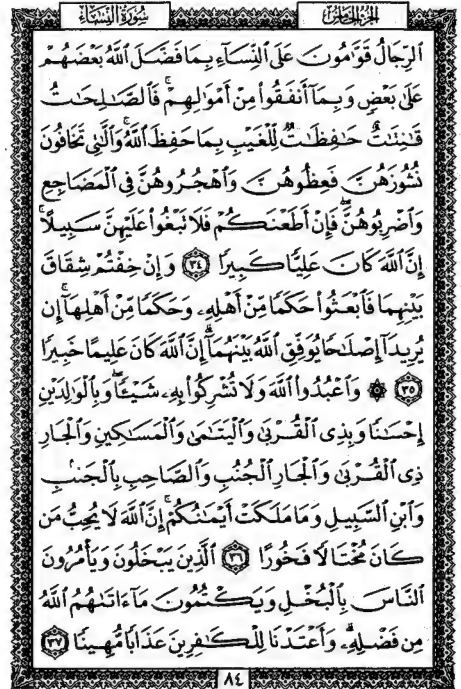 الجزء الخامس
سورة النساء
الرِّجَالُ قَوَّامُونَ عَلَى النِّسَاءِ بِمَا فَضَّلَ اللَّهُ بَعْضَهُمْ
عَلَىٰ بَعْضٍ وَبِمَا أَنفَقُوا مِنْ أَمْوَالِهِمْ ۚ فَالصَّالِحَاتُ
قَانِتَاتٌ حَافِظَاتٌ لِّلْغَيْبِ بِمَا حَفِظَ اللَّهُ ۚ وَالَّاتِي تَخَافُونَ
نُشُوزَهُنَّ فَعِظُوهُنَّ وَاهْجُرُوهُنَّ فِي الْمَضَاجِعِ
وَاضْرِبُوهُنَّ ۖ فَإِنْ أَطَعْنَكُمْ فَلَا تَبْغُوا عَلَيْهِنَّ سَبِيلًا ۗ
إِنَّ اللَّهَ كَانَ عَلِيًّا كَبِيرًا ٣٤ وَإِنْ خِفْتُمْ شِقَاقَ
بَيْنِهِمَا فَابْعَثُوا حَكَمًا مِّنْ أَهْلِهِ وَحَكَمًا مِّنْ أَهْلِهَا إِن
يُرِيدَا إِصْلَاحًا يُوَفِّقِ اللَّهُ بَيْنَهُمَا ۗ إِنَّ اللَّهَ كَانَ عَلِيمًا خَبِيرًا
٣٥ ۞ وَاعْبُدُوا اللَّهَ وَلَا تُشْرِكُوا بِهِ شَيْئًا ۖ وَبِالْوَالِدَيْنِ
إِحْسَانًا وَبِذِي الْقُرْبَىٰ وَالْيَتَامَىٰ وَالْمَسَاكِينِ وَالْجَارِ
ذِي الْقُرْبَىٰ وَالْجَارِ الْجُنُبِ وَالصَّاحِبِ بِالْجَنبِ
وَابْنِ السَّبِيلِ وَمَا مَلَكَتْ أَيْمَانُكُمْ ۗ إِنَّ اللَّهَ لَا يُحِبُّ مَن
كَانَ مُخْتَالًا فَخُورًا ٣٦ الَّذِينَ يَبْخَلُونَ وَيَأْمُرُونَ
النَّاسَ بِالْبُخْلِ وَيَكْتُمُونَ مَا آتَاهُمُ اللَّهُ
مِن فَضْلِهِ ۗ وَأَعْتَدْنَا لِلْكَافِرِينَ عَذَابًا مُّهِينًا ٣٧
٨٤